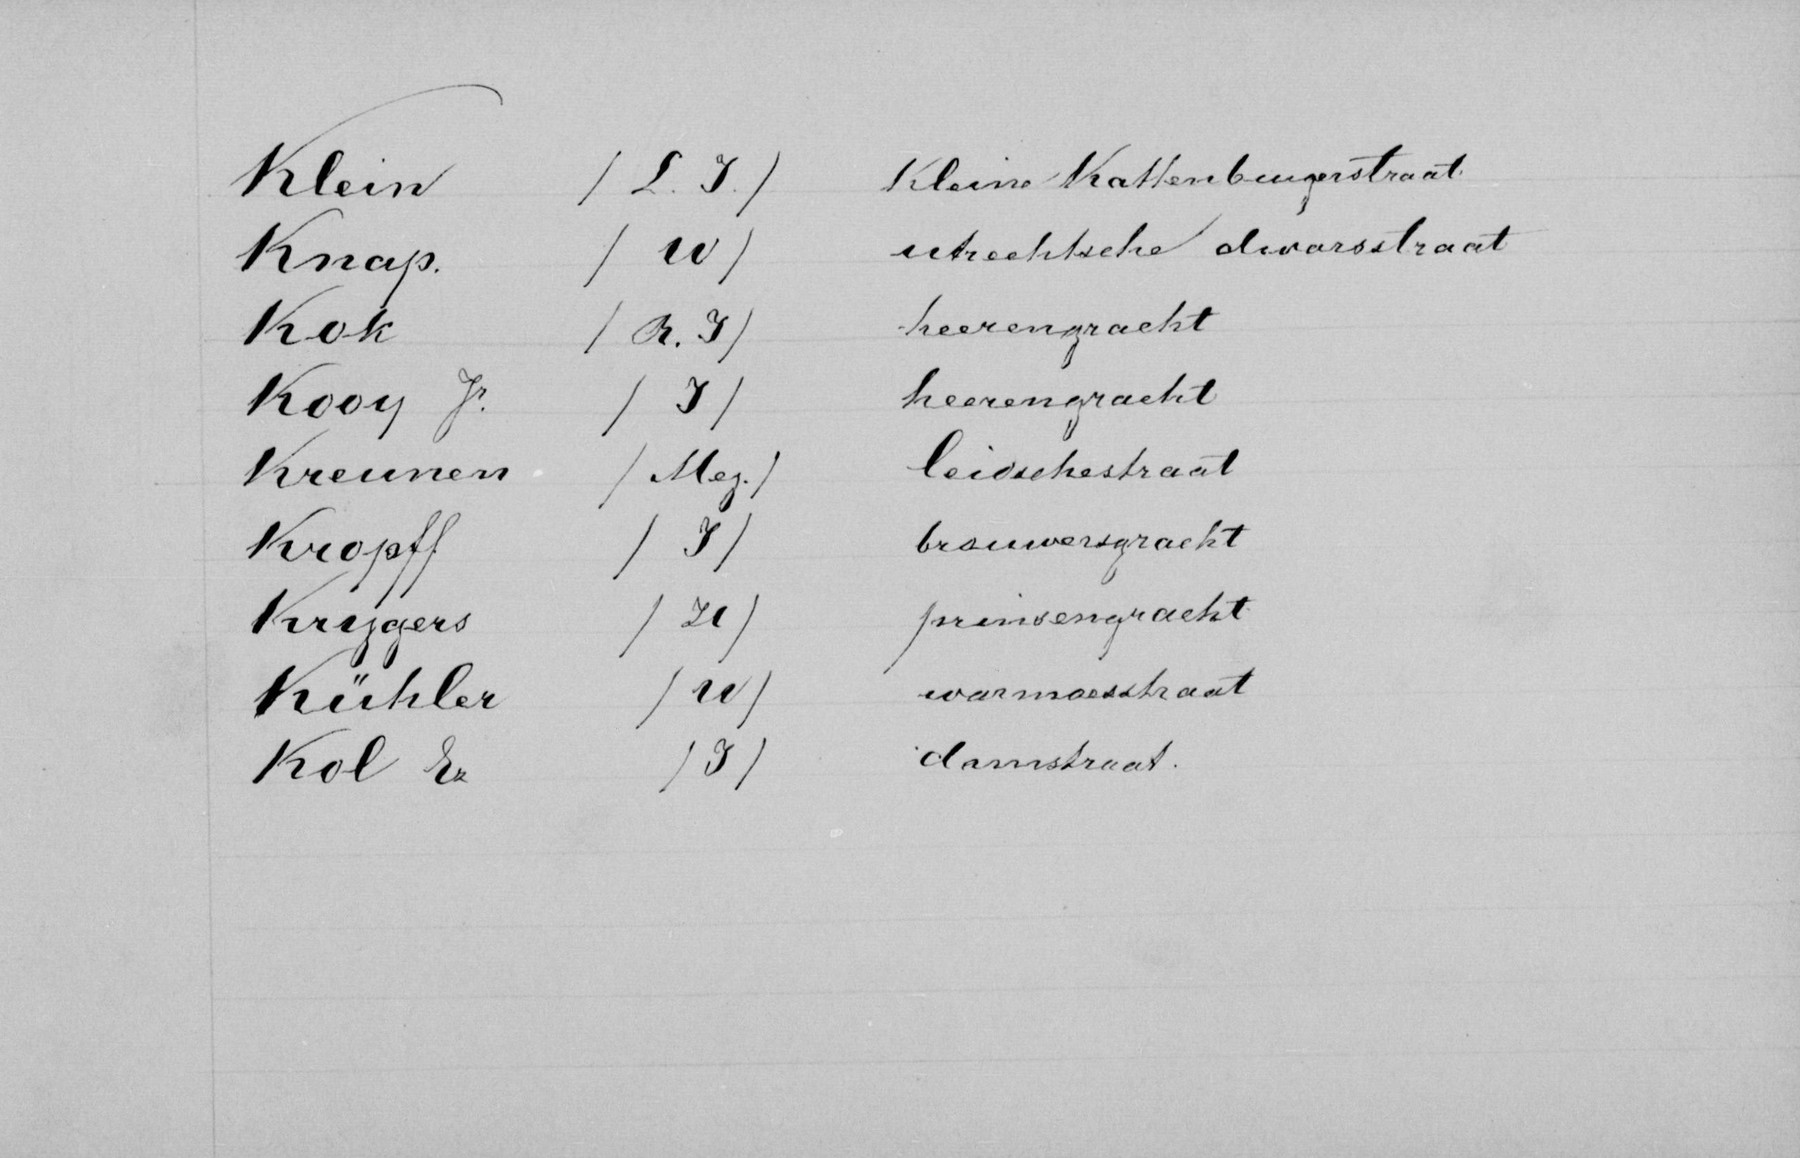 Klein / L. J. / Kleine Kattenburgerstraat
Knap. / W / utrechtsche dwarsstraat
Kok / R. J / heerengracht
Kooy Jr. / J / heerengracht
Kreunen / Mej. / leidschestraat
Kropff / J / brouwersgracht
Krijgers / / prinsengracht
Kühler / W / warmoesstraat
Kol / J / damstraat.